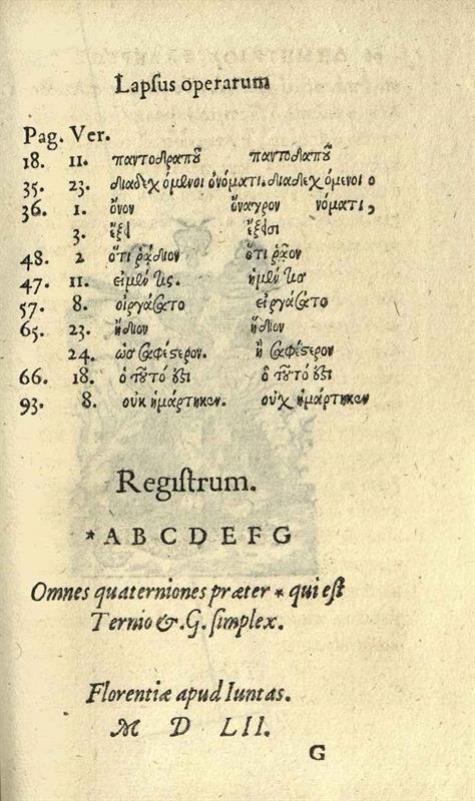 Lapſus operarum
Pag. Ver.
18. 11. παντοδραποῦ παντοδαποῦ
35. 23. διαδεχόμενοι ὀνόματι. διαδεχόμενοι ο
36. 1. ὄνον ὄναγρον νόματι,
3.
48. 2 ὅτι ῥᾴδιον ὅτι
47. 11.
57. 8. οἰργάσατο εἰργάσατο
65. 23. ἥδιον ἤδιον
24. ὡς σαφέστερον. ἢ σαφέστερον
66. 18. ὁ τοῦτό ὅ τοῦτό
93. 8. ουκ ἡμάρτηκεν. ουχ ἡμάρτηκεν
Regiſtrum.
* A B C D E F G
Omnes quaterniones præter * qui eſt
Ternio &. G. ſimplex.
Florentiæ apud Iuntas.
M D LII.
G